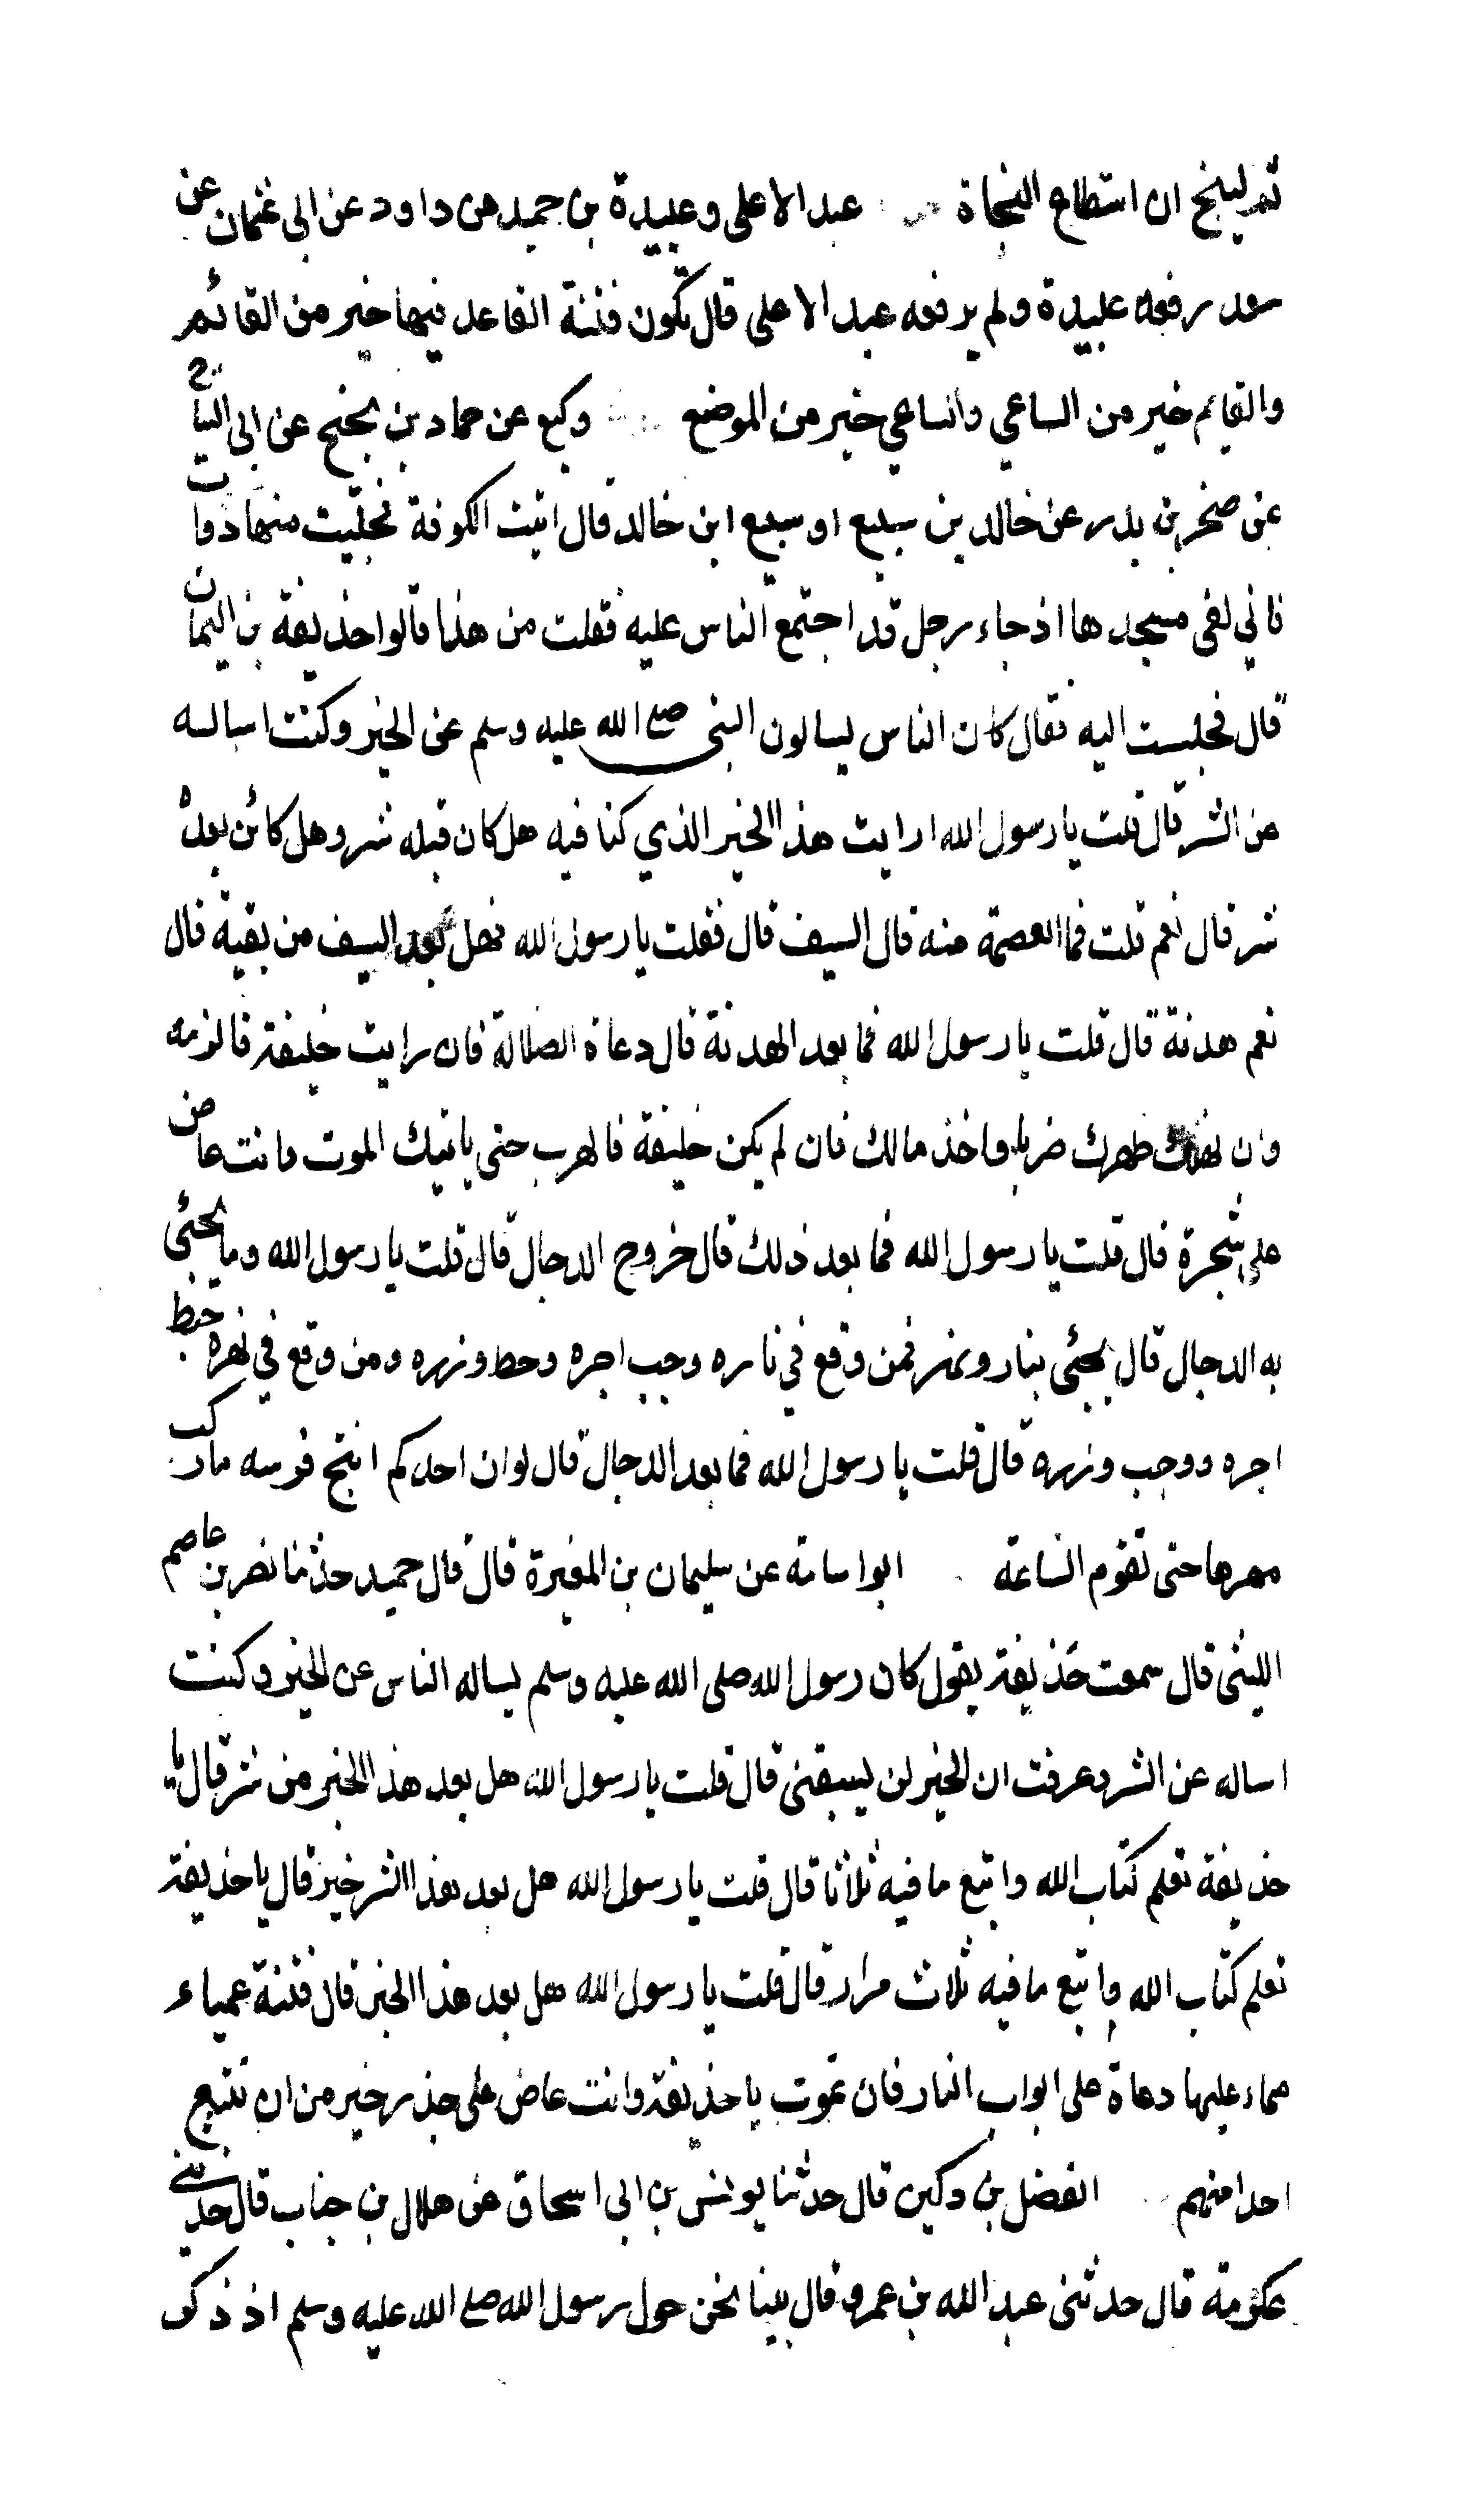 ثم لينج ان استطاع النجاة عبد الاعلى وعبيدة بن حميد عن داود عن ابى عثمان عن
سعد رفعه عبيدة ولم يرفعه عبد الاعلى قال تكون فتنة القاعد فيها خير من القائم
والقايم خير من الساعي والساعي خير من الموضع وكيع عن حماد بن نجيح عن ابى التياح
عن صخر بن بدر عن خالد بن سبيع او سبيع ابن خالد قال اتيت الكوفة فجلبت منها دواب
فاني لفى مسجدها اذ جاء رجل قد اجتمع الناس عليه فقلت من هذا قالوا حذيفة بن اليمان
قال فجلست اليه فقال كان الناس يسالون النبى صلى الله عليه وسلم عن الخير وكنت اساله
عن الشر قال قلت يا رسول الله ارايت هذا الخير الذي كنا فيه هل كان قبله شر وهل كائن بعده
شر قال نعم قلت فما العصمة منه قال السيف قال فقلت يا رسول الله فهل بعد السيف من بقية قال
نعم هدنة قال قلت يا رسول الله فما بعد الهدنة قال دعاة الضلالة فان رايت خليفة فالزمه
وان نهك ظهرك ضربا واخذ مالك فان لم يكن خليفة فالهرب حتى ياتيك الموت وانت عاض
على شجرة قال قلت يا رسول الله فما بعد ذلك قال خروج الدجال قال قلت يا رسول الله وما يجئى
به الدجال قال يجئى بنار ونهر فمن وقع في ناره وجب اجره وحط وزره ومن وقع في نهره حبط
اجره ووجب وزره قال قلت يا رسول الله فما بعد الدجال قال لو ان احدكم انتج فرسه ما ركب
مهرها حتى تقوم الساعة ابو اسامة عن سليمان بن المغيرة قال قال حميد حدثنا نصر بن عاصم
الليثى قال سمعت حذيفة يقول كان رسول الله صلى الله عليه وسلم يساله الناس عن الخير وكنت
اساله عن الشر وعرفت ان الخير لن يسبقنى قال قلت يا رسول الله هل بعد هذا الخير من شر قال يا
حذيفة تعلم كتاب الله واتبع ما فيه ثلاثا قال قلت يا رسول الله هل بعد هذا الشر خير قال يا حذيفة
تعلم كتاب الله واتبع ما فيه ثلاث مرار قال قلت يا رسول الله هل بعد هذا الخير قال فتنة عمياء
صماء عليها دعاة على ابواب النار فان تموت يا حذيفة وانت عاض على جذر خير من ان تتبع
احدا منهم الفضل بن دكين قال حدثنا يونس بن ابى اسحاق عن هلال بن خباب قال حدثنى
عكرمة قال حدثنى عبد الله بن عمرو قال بينا نحن حول رسول الله صلى الله عليه وسلم اذ ذكر